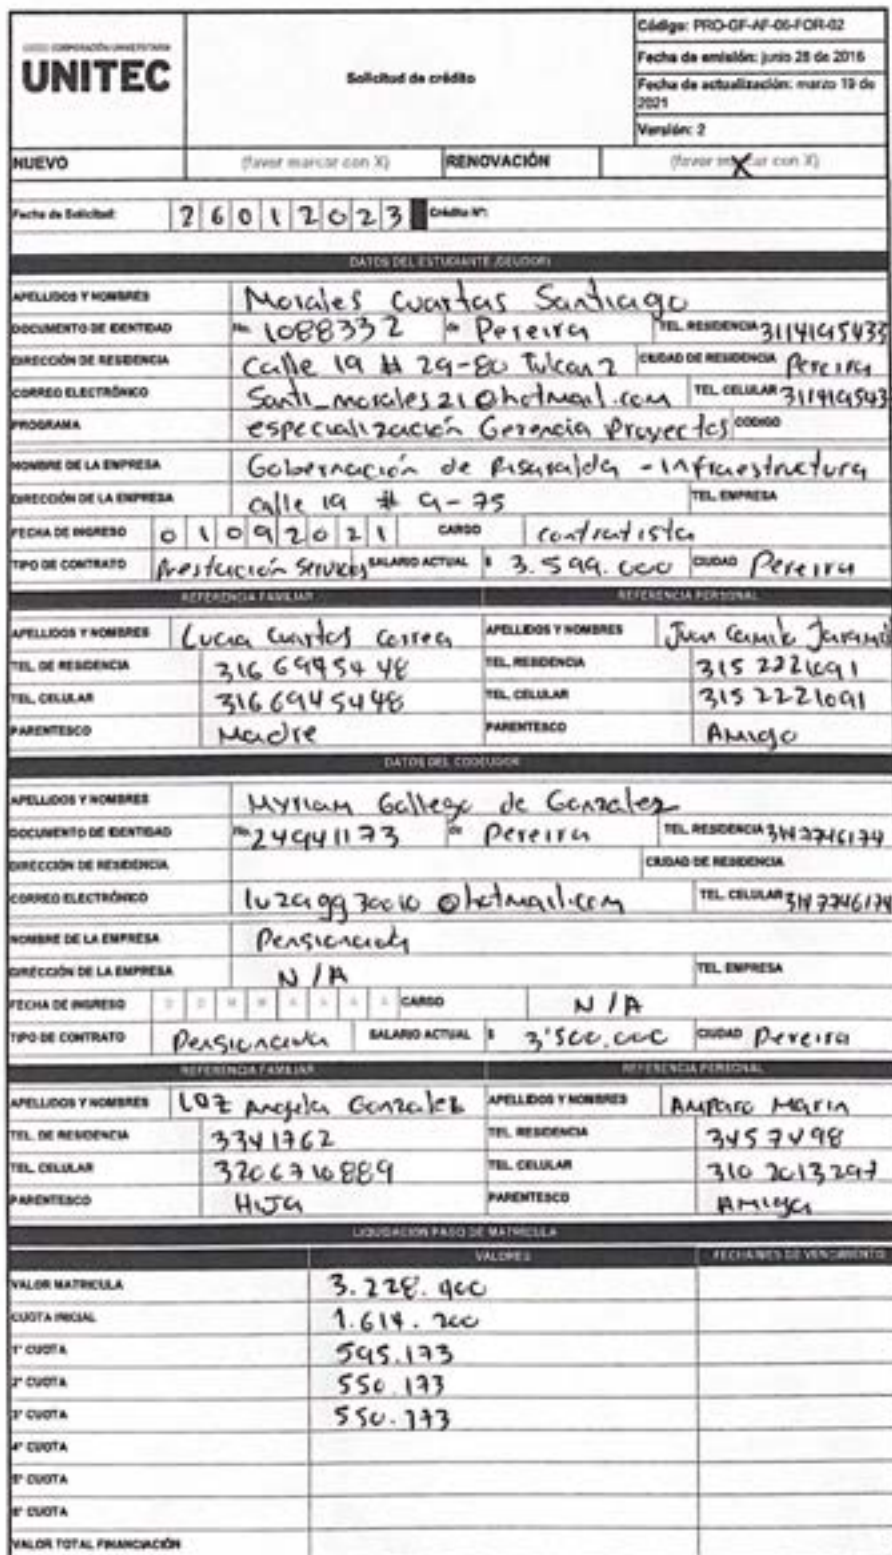 CORPORACIÓN UNIVERSITARIA
UNITEC
Solicitud de crédito
Código: PRO-GF-AF-06-FOR-02
Fecha de emisión: junio 28 de 2016
Fecha de actualización: marzo 19 de 2021
Versión: 2
NUEVO (favor marcar con X) RENOVACIÓN (favor marcar con X) X
Fecha de Solicitud: 26012023 Crédito N°:
DATOS DEL ESTUDIANTE (DEUDOR)
APELLIDOS Y NOMBRES Morales Cuartas Santiago
DOCUMENTO DE IDENTIDAD No. 1088332 de Pereira TEL. RESIDENCIA 3114195433
DIRECCIÓN DE RESIDENCIA Calle 19 # 29-80 Tulcan 2 CIUDAD DE RESIDENCIA Pereira
CORREO ELECTRÓNICO Santi_morales21@hotmail.com TEL. CELULAR 311419543
PROGRAMA especialización Gerencia Proyectos CODIGO
NOMBRE DE LA EMPRESA Gobernación de Risaralda - Infraestructura
DIRECCIÓN DE LA EMPRESA Calle 19 # 9-75 TEL. EMPRESA
FECHA DE INGRESO 01092021 CARGO contratista
TIPO DE CONTRATO Prestación Servicios SALARIO ACTUAL $ 3.599.000 CIUDAD Pereira
REFERENCIA FAMILIAR REFERENCIA PERSONAL
APELLIDOS Y NOMBRES Lucia Cuartas Correa APELLIDOS Y NOMBRES Juan Camilo Jaramill
TEL. DE RESIDENCIA 3166945448 TEL. RESIDENCIA 3152221091
TEL. CELULAR 3166945448 TEL. CELULAR 3152221091
PARENTESCO Madre PARENTESCO Amigo
DATOS DEL CODEUDOR
APELLIDOS Y NOMBRES Myriam Gallego de Gonzalez
DOCUMENTO DE IDENTIDAD No. 24941173 de Pereira TEL. RESIDENCIA 3147746174
DIRECCIÓN DE RESIDENCIA CIUDAD DE RESIDENCIA
CORREO ELECTRÓNICO luzagg30010@hotmail.com TEL. CELULAR 3147746174
NOMBRE DE LA EMPRESA Pensionada
DIRECCIÓN DE LA EMPRESA N/A TEL. EMPRESA
FECHA DE INGRESO D D M M A A A A CARGO N/A
TIPO DE CONTRATO Pensionada SALARIO ACTUAL $ 3'500.000 CIUDAD Pereira
REFERENCIA FAMILIAR REFERENCIA PERSONAL
APELLIDOS Y NOMBRES LUZ Angela Gonzalez APELLIDOS Y NOMBRES Amparo Marin
TEL. DE RESIDENCIA 3341762 TEL. RESIDENCIA 3457498
TEL. CELULAR 3206710889 TEL. CELULAR 3102013297
PARENTESCO HIJA PARENTESCO AMIGA
LIQUIDACION PASO DE MATRICULA
VALORES FECHA/MES DE VENCIMIENTO
VALOR MATRICULA 3.228.400
CUOTA INICIAL 1.614.200
1° CUOTA 595.173
2° CUOTA 550.173
3° CUOTA 550.173
4° CUOTA
5° CUOTA
6° CUOTA
VALOR TOTAL FINANCIACIÓN